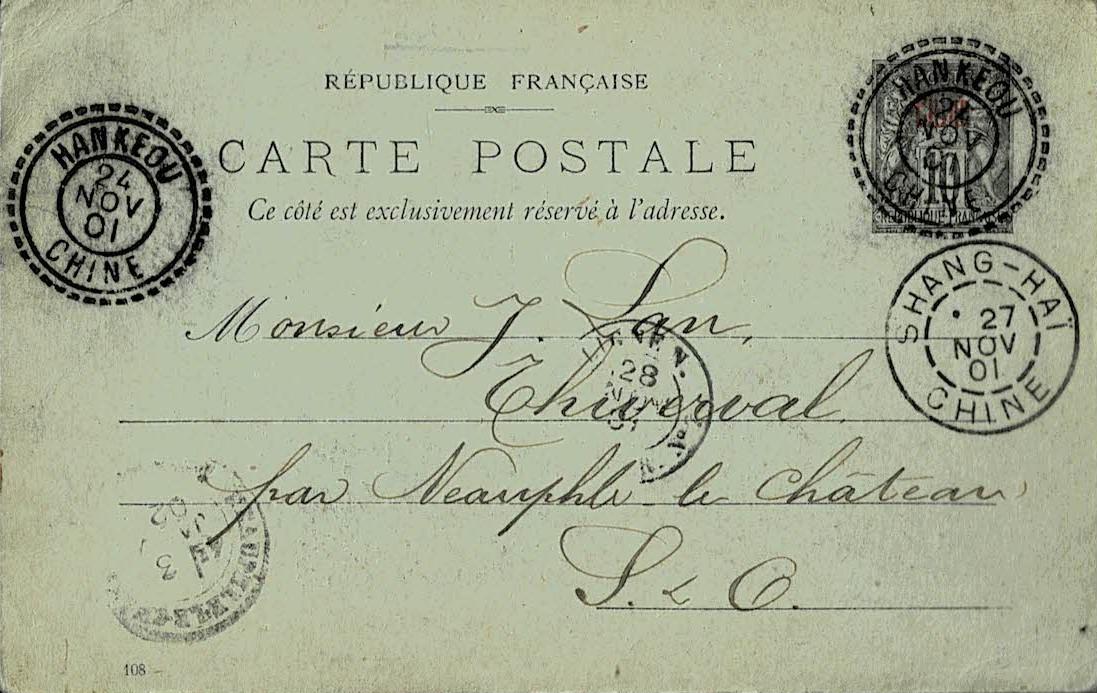 RÉPUBLIQUE FRANÇAISE
CARTE POSTALE
Ce côté est exclusivement réservé à l'adresse.
HANKEOU
24
NOV
01
CHINE
HANKEOU
24
NOV
01
CHINE
RÉPUBLIQUE FRANÇAISE
SHANG-HAÏ
27
NOV
01
CHINE
Monsieur J. Lan,
Thiverval
par Neauphle le Château
S. & O.
28
3
JANV
02
108